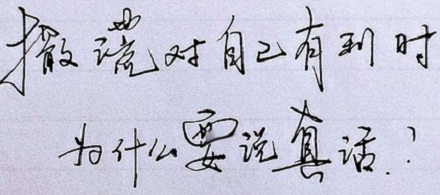 撒谎对自己有利时
为什么要说真话?